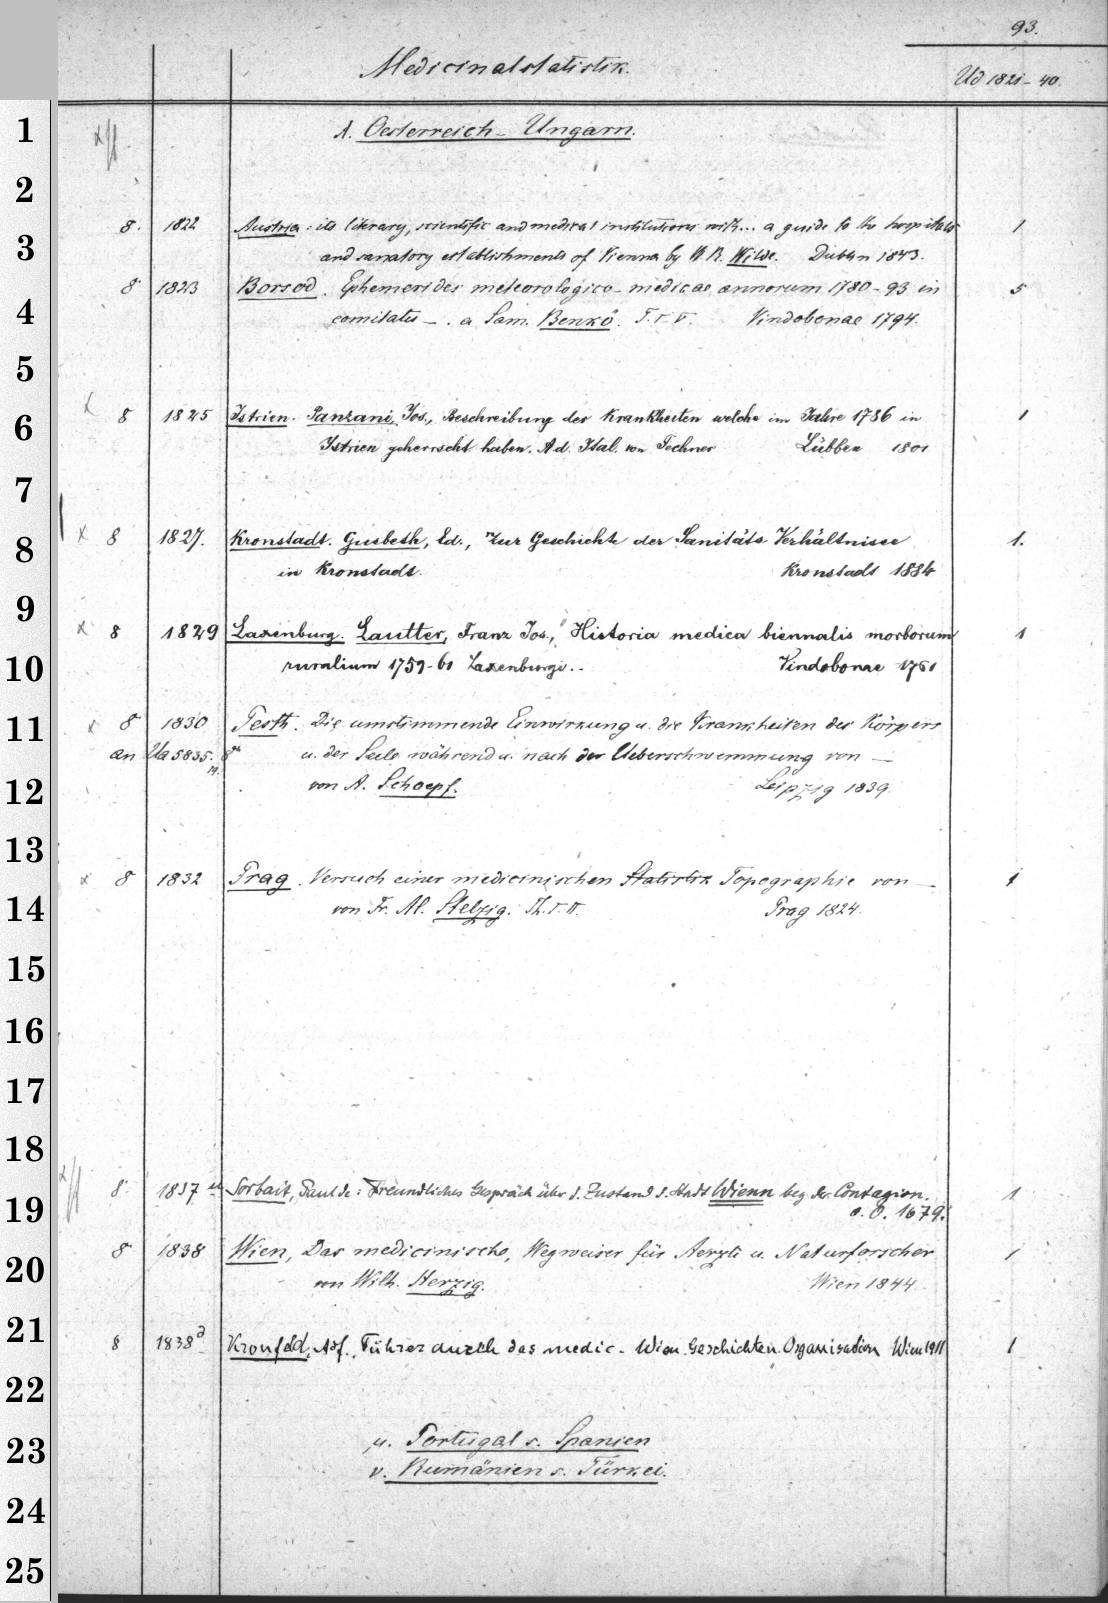 93.
Medicinalstatistik.
Ud 1821-40.
1 t. Oesterreich-Ungarn.
2
8. 1822 Austria: its literary, scientific and medical institutions with... a guide to the hospitals 1
3 and sanatory establishments of Vienna by W. R. Wilde. Dublin 1843.
8 1823 Borsod. Ephemerides meteorologico-medicae annorum 1780-93 in 5
4 comitatu —. a Sam. Benkö. T. I-V. Vindobonae 1794.
5
x 8 1825 Istrien. Panzani, Jos., Beschreibung der Krankheiten welche im Jahre 1786 in 1
6 Istrien geherrscht haben. A. d. Ital. von Fechner Lübben 1801
7
x 8 1827. Kronstadt. Gusbeth, Ed., Zur Geschichte der Sanitäts Verhältnisse 1.
8 in Kronstadt. Kronstadt 1884
9
x 8 1829 Laxenburg. Lautter, Franz Jos., Historia medica biennalis morborum 1
10 ruralium 1759-60 Laxenburgi.. Vindobonae 1761
11 x 8 1830 Pesth. Die umstimmende Einwirkung u. die Krankheiten des Körpers
an Ua 5835. 8° u. der Seele während u. nach der Ueberschwemmung von —
12 von A. Schoepf. Leipzig 1839.
13
x 8 1832 Prag. Versuch einer medicinischen Statistik Topographie von — 1
14 von Fr. Al. Stelzig. Th. I-II. Prag 1824.
15
16
17
18
8. 1837 Sorbait, Paul de: Freundliches Gespräch über d. Zustand d. Stadt Wienn bey der Contagion. 1
19 o. O. 1679.
8 1838 Wien, Das medicinische, Wegweiser für Aerzte u. Naturforscher 1
20 von Wilh. Herzig. Wien 1844.
21 8 1838a Kronfeld, Adf. Führer durch das medic. Wien. Geschichten. Organisation Wien 1911 1
22
u. Portugal s. Spanien
23 v. Rumänien s. Türkei.
24
25